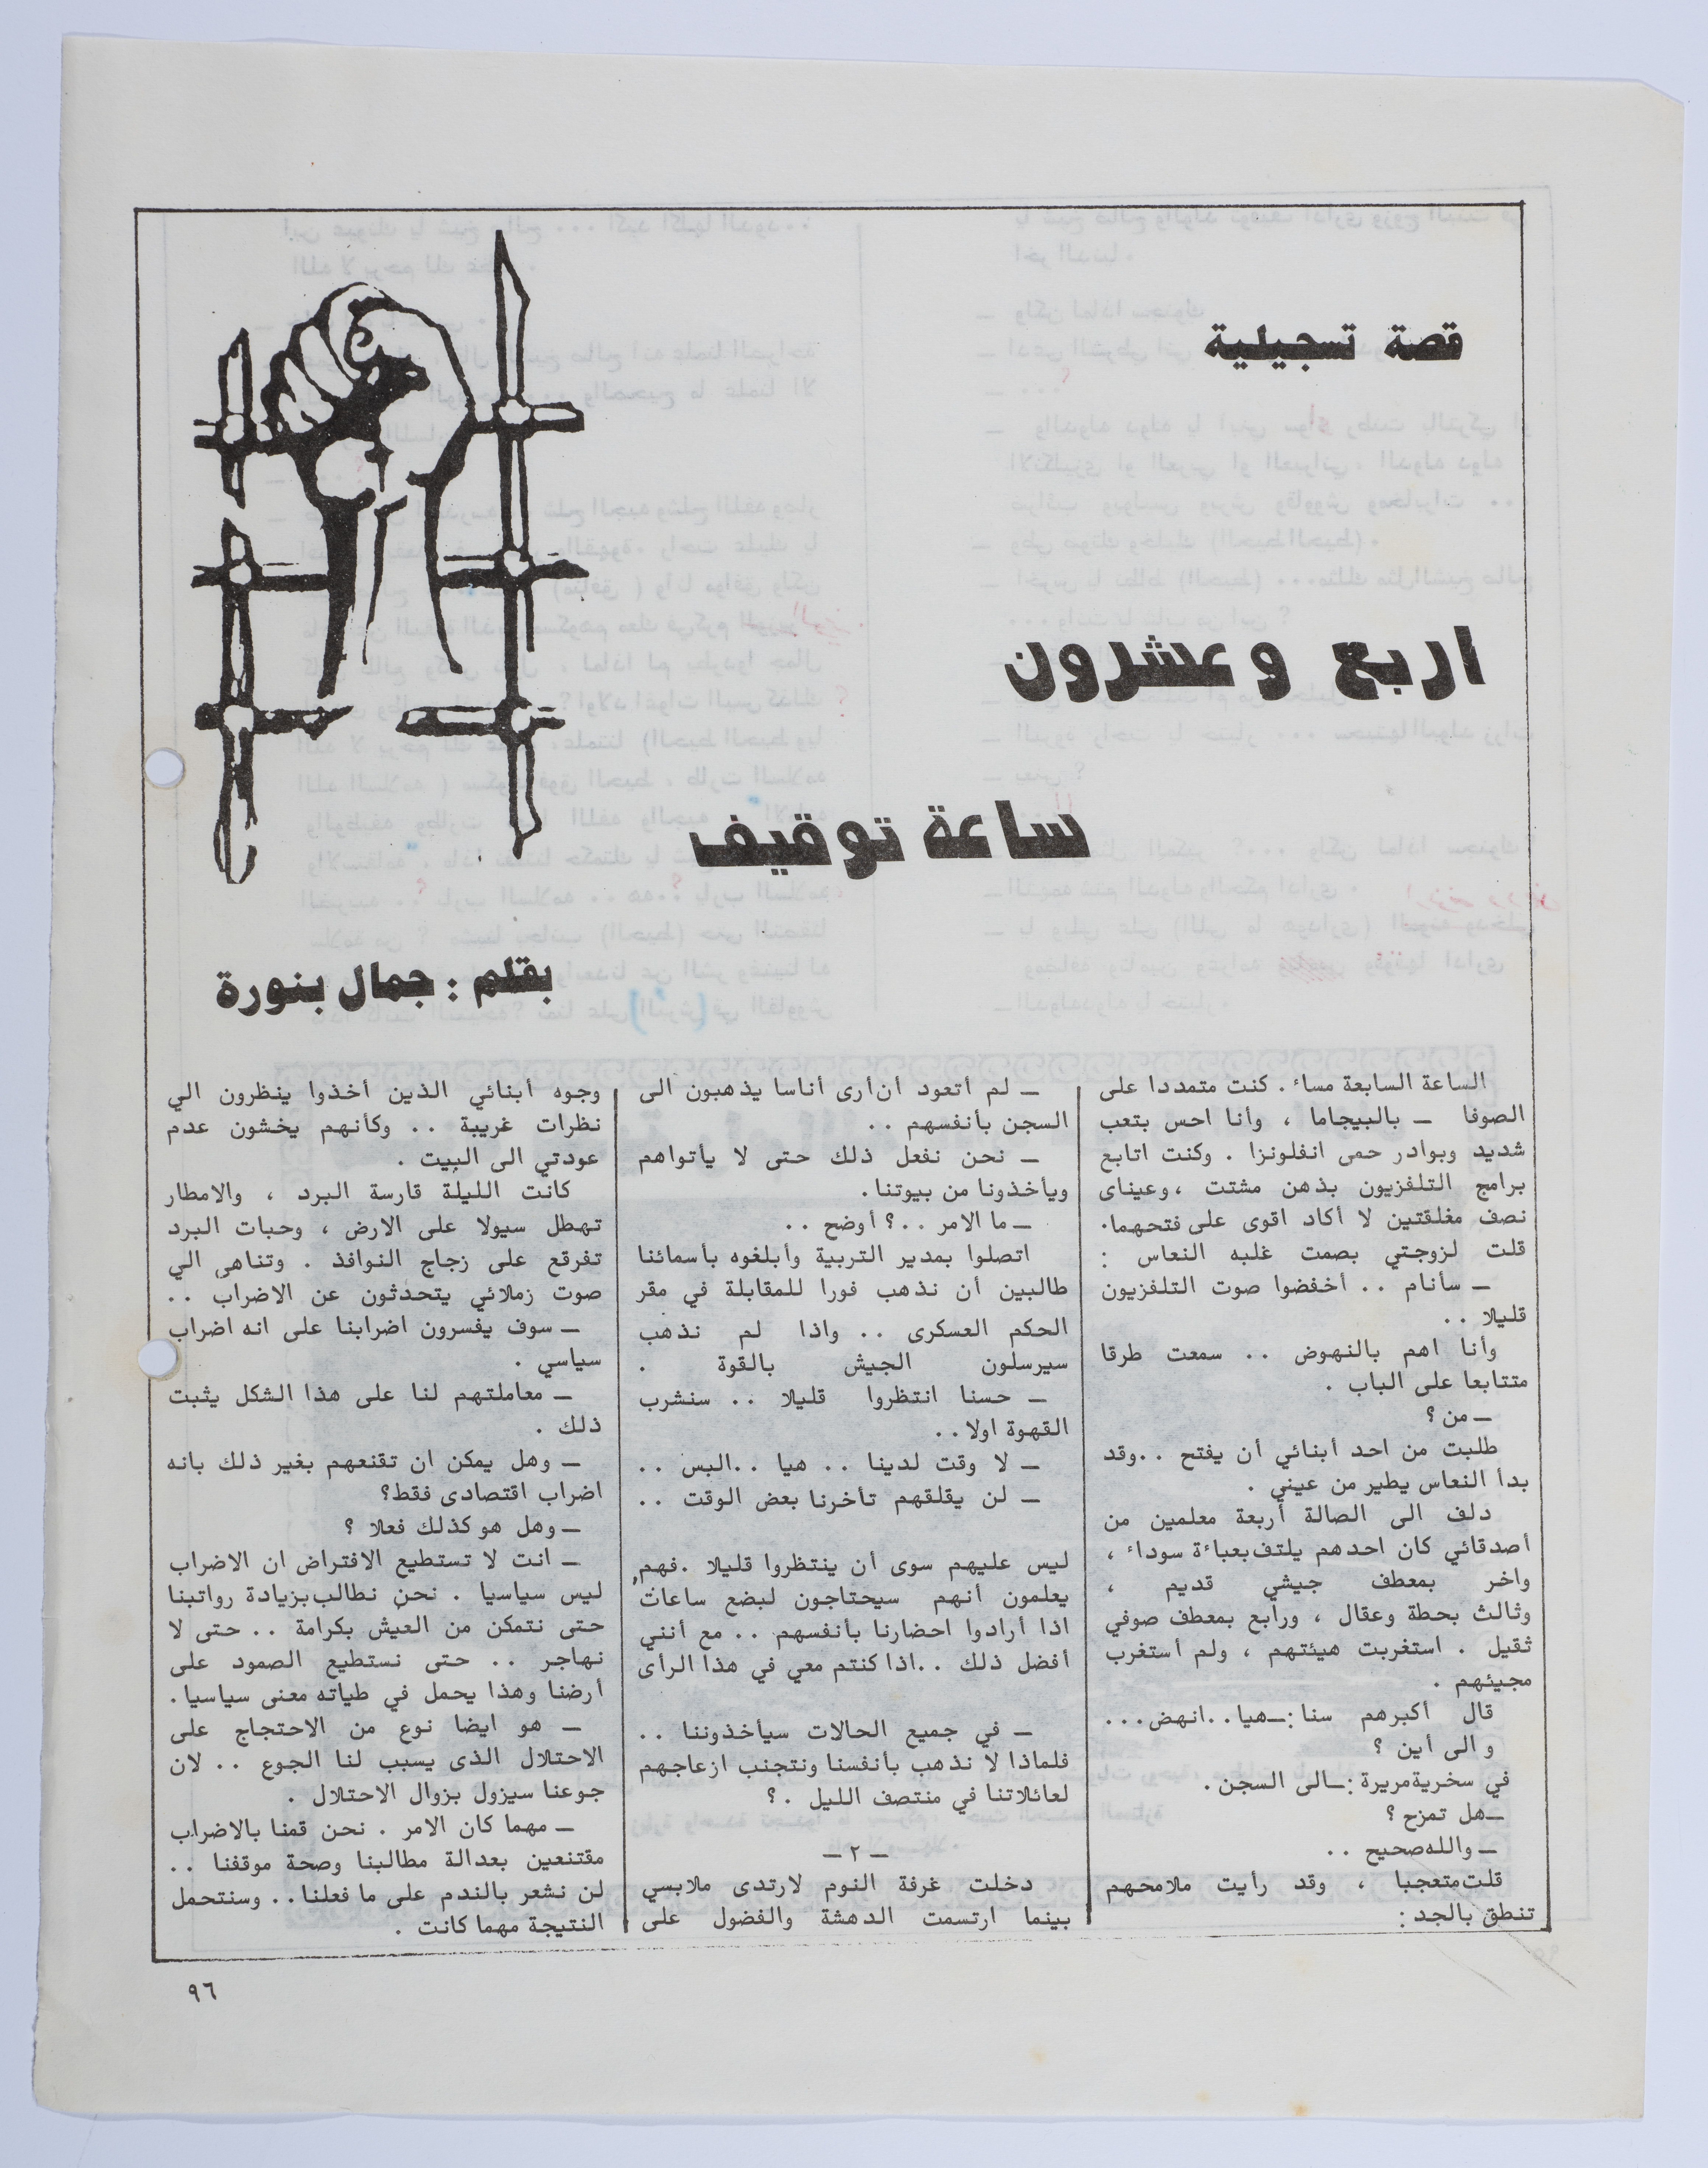 قصة تسجيلية
اربع وعشرون
ساعة توقيف
بقلم : جمال بنورة
الساعة السابعة مساء . كنت متمددا على
الصوفا ــ بالبيجاما ، وأنا احس بتعب
شديد وبوادر حمى انفلونزا . وكنت اتابع
برامج التلفزيون بذهن مشتت ، وعيناى
نصف مغلقتين لا أكاد اقوى على فتحهما.
قلت لزوجتي بصمت غلبه النعاس :
ــ سأنام .. أخفضوا صوت التلفزيون
قليلا ..
وأنا اهم بالنهوض .. سمعت طرقا
متتابعا على الباب .
ــ من ؟
طلبت من احد أبنائي أن يفتح ..وقد
بدأ النعاس يطير من عيني .
دلف الى الصالة أربعة معلمين من
أصدقائي كان احدهم يلتف بعباءة سوداء ،
واخر بمعطف جيشي قديم ،
وثالث بحطة وعقال ، ورابع بمعطف صوفي
ثقيل . استغربت هيئتهم ، ولم أستغرب
مجيئهم .
قال أكبرهم سنا :ــ هيا ..انهض...
و الى أين ؟
في سخرية مريرة :ــ الى السجن .
ــ هل تمزح ؟
ــ والله صحيح ..
قلت متعجبا ، وقد رأيت ملامحهم
تنطق بالجد :
ــ لم أتعود أن أرى أناسا يذهبون الى
السجن بأنفسهم ..
ــ نحن نفعل ذلك حتى لا يأتواهم
ويأخذونا من بيوتنا .
ــ ما الامر ..؟ أوضح ..
اتصلوا بمدير التربية وأبلغوه بأسمائنا
طالبين أن نذهب فورا للمقابلة في مقر
الحكم العسكرى .. واذا لم نذهب
سيرسلون الجيش بالقوة .
ــ حسنا انتظروا قليلا .. سنشرب
القهوة اولا ..
ــ لا وقت لدينا .. هيا ..البس ..
ــ لن يقلقهم تأخرنا بعض الوقت ..
ليس عليهم سوى أن ينتظروا قليلا .فهم
يعلمون أنهم سيحتاجون لبضع ساعات
اذا أرادوا احضارنا بأنفسهم .. مع أنني
أفضل ذلك ..اذا كنتم معي في هذا الرأى
ــ في جميع الحالات سيأخذوننا ..
فلماذا لا نذهب بأنفسنا ونتجنب ازعاجهم
لعائلاتنا في منتصف الليل .؟
ــ ٢ ــ
دخلت غرفة النوم لارتدى ملابسي
بينما ارتسمت الدهشة والفضول على
وجوه أبنائي الذين أخذوا ينظرون الي
نظرات غريبة .. وكأنهم يخشون عدم
عودتي الى البيت .
كانت الليلة قارسة البرد ، والامطار
تهطل سيولا على الارض ، وحبات البرد
تفرقع على زجاج النوافذ . وتناهى الي
صوت زملائي يتحدثون عن الاضراب ..
ــ سوف يفسرون اضرابنا على انه اضراب
سياسي .
ــ معاملتهم لنا على هذا الشكل يثبت
ذلك .
ــ وهل يمكن ان تقنعهم بغير ذلك بانه
اضراب اقتصادى فقط؟
ــ وهل هو كذلك فعلا ؟
ــ انت لا تستطيع الافتراض ان الاضراب
ليس سياسيا . نحن نطالب بزيادة رواتبنا
حتى نتمكن من العيش بكرامة .. حتى لا
نهاجر .. حتى نستطيع الصمود على
أرضنا وهذا يحمل في طياته معنى سياسيا.
ــ هو ايضا نوع من الاحتجاج على
الاحتلال الذى يسبب لنا الجوع .. لان
جوعنا سيزول بزوال الاحتلال .
ــ مهما كان الامر . نحن قمنا بالاضراب
مقتنعين بعدالة مطالبنا وصحة موقفنا ..
لن نشعر بالندم على ما فعلنا .. وسنتحمل
النتيجة مهما كانت .
٩٦